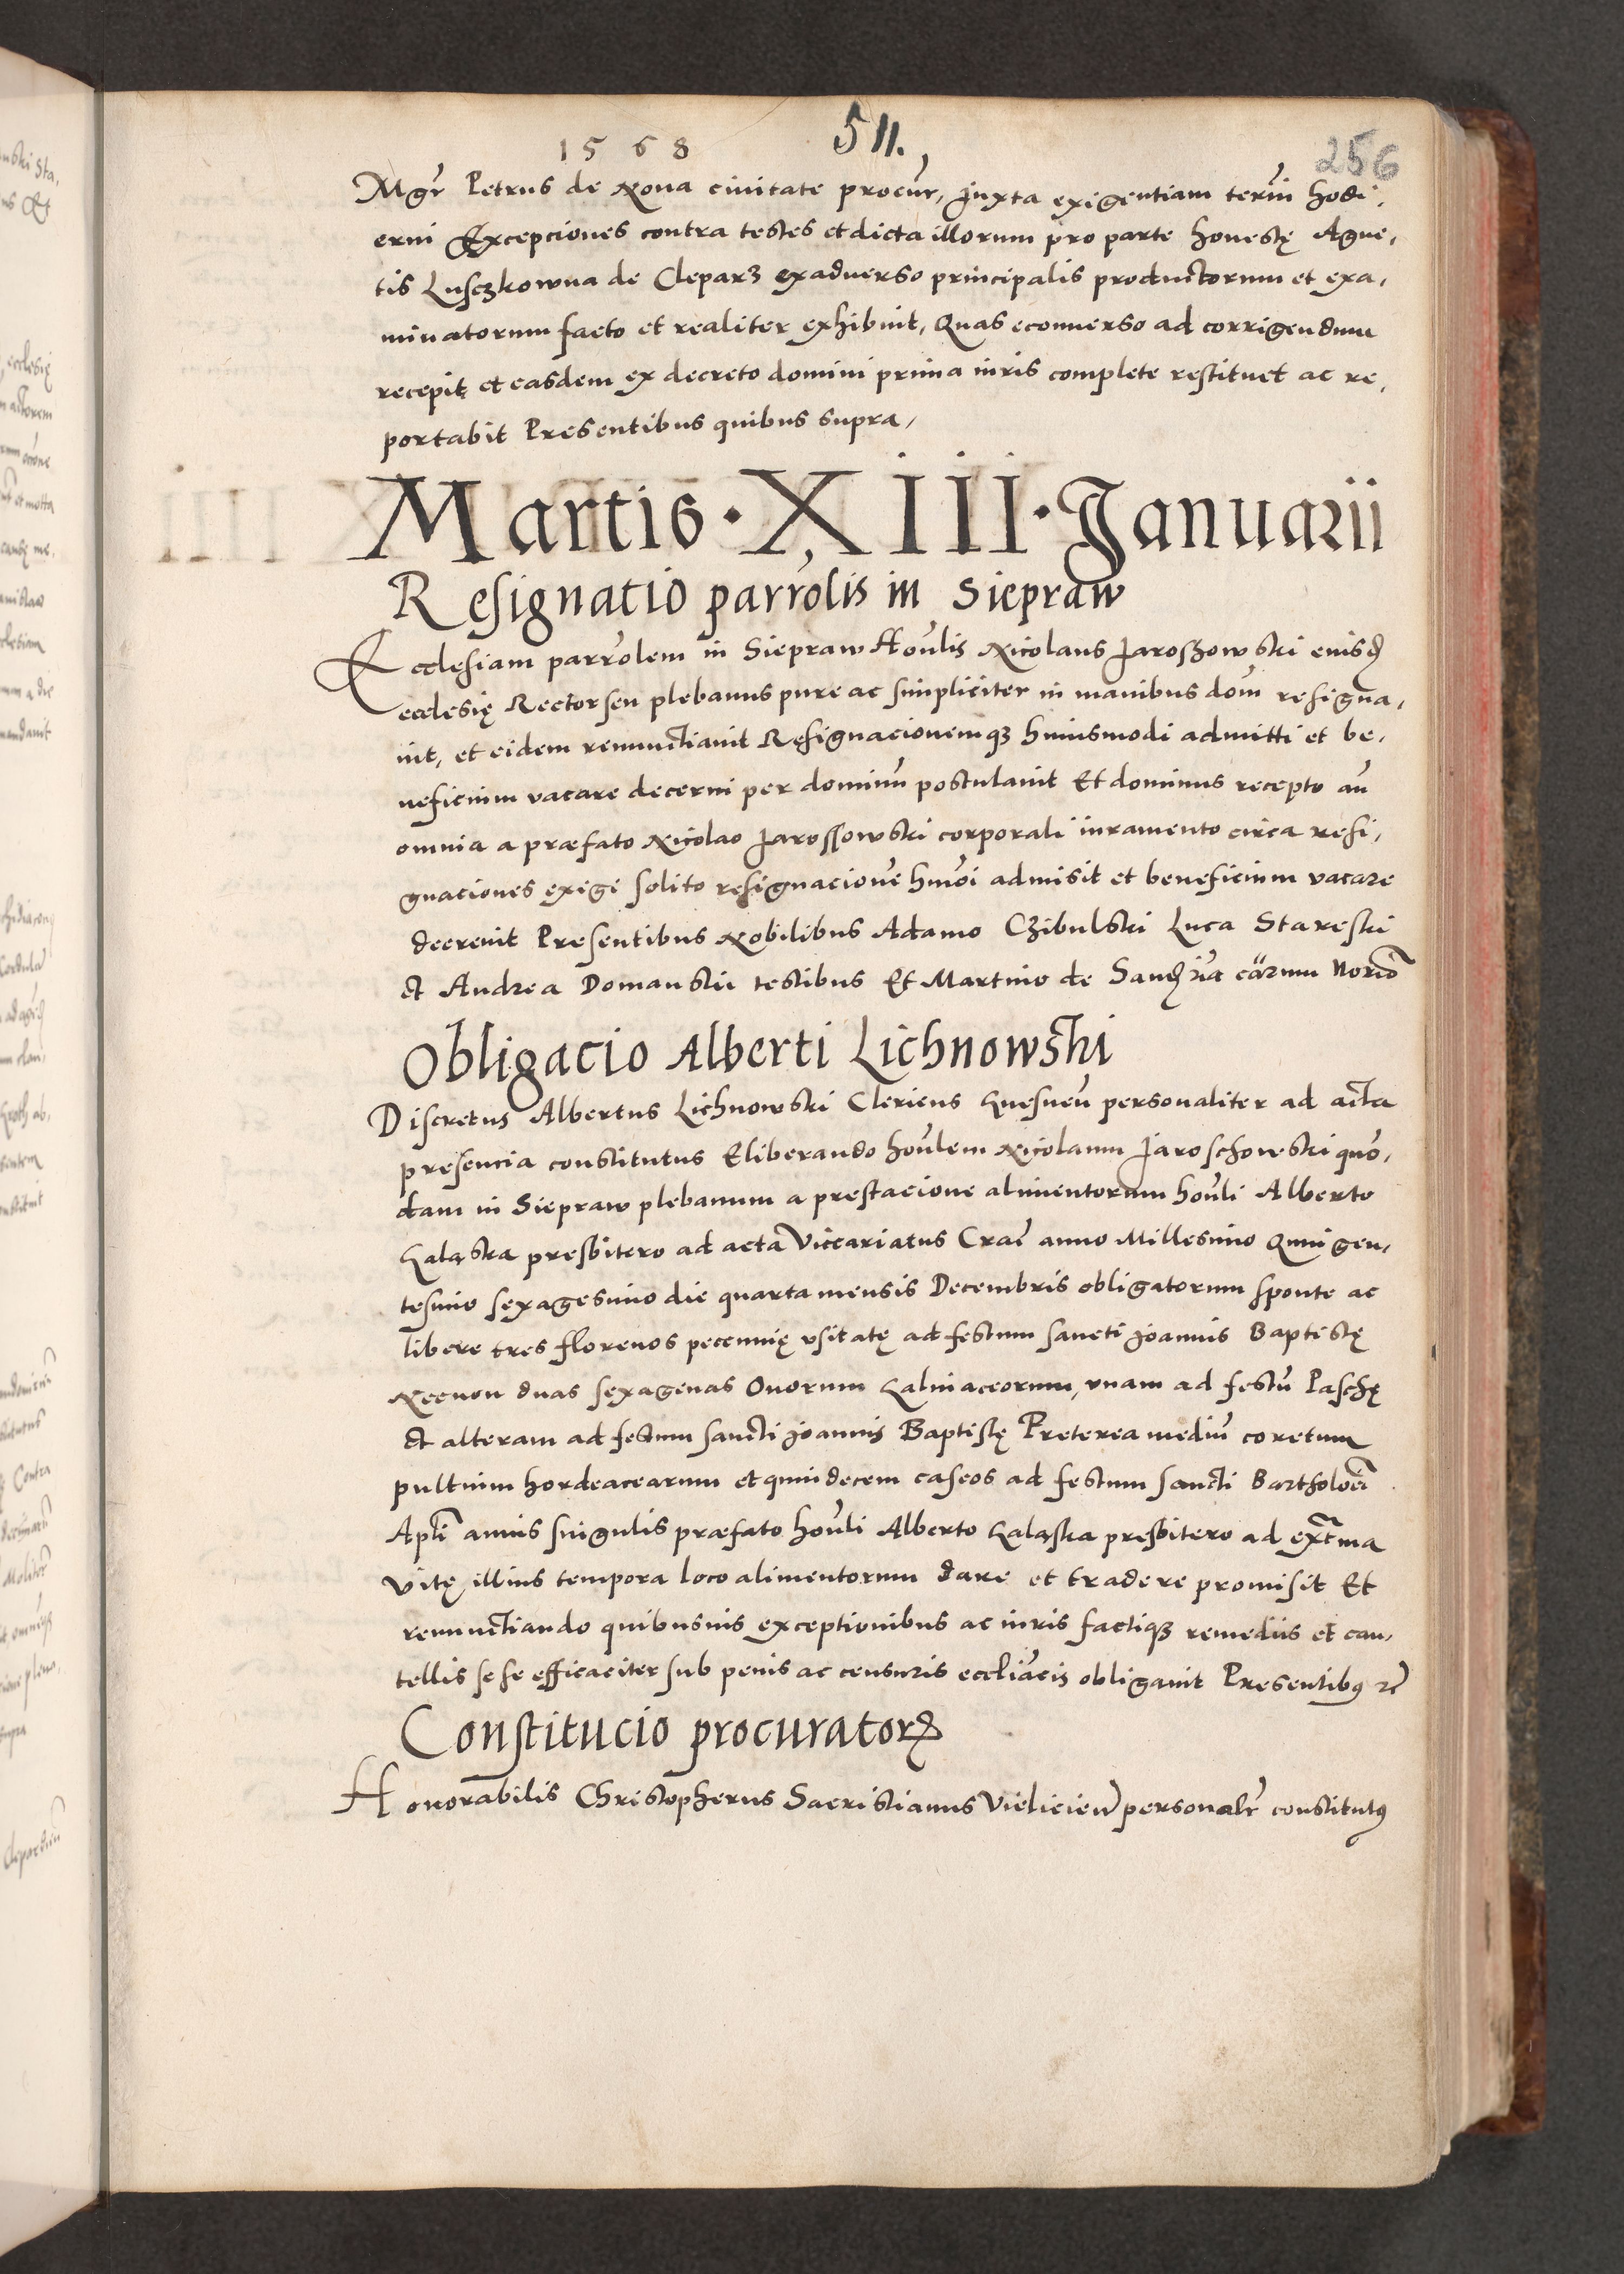 1568
511.
256
Mgr Petrus de Nova civitate procur, Juxta exigentiam termi hodi,
erni Excepciones contra testes et dicta illorum pro parte honestę Agne,
tis Lusczkowna de Cleparz exadverso principalis productorum et exa,
minatorum facto et realiter exhibuit, Quas econverso ad corrigendum
recepit et easdem ex decreto domini prima iuris complete restituet ac re,
portabit Presentibus quibus supra,
Martis · XIII · Januarii
Resignatio parrolis in Siepraw
Ecclesiam parrolem in Siepraw Honlis Nicolaus Jaroszowski eiusd
ecclesię Rector seu plebanus pure ac simpliciter in manibus dom resigna,
vit, et eidem renunctiavit Resignacionemq3 huiusmodi admitti et be,
neficium vacare decerni per dominum postulavit Et dominus recepto an
omnia a præfato Nicolao Jarossowski corporali iuramento circa resi,
gnaciones exigi solito resignacione hmoi admisit et beneficium vacare
decrevit Presentibus Nobilibus Adamo Czibulski Luca Stareski
et Andrea Domanski testibus Et Martino de Sandzia carum Norio
Obligacio Alberti Lichnowski
Discretus Albertus Lichnowski Clericus Gnesnen personaliter ad acta
presencia constitutus Eliberando honlem Nicolaum Jaroschowski quo,
dam in Siepraw plebanum a prestacione alimentorum honli Alberto
Galąska presbitero ad acta Viccariatus Crac anno Millesimo Quingen,
tesimo sexagesimo die quarta mensis Decembris obligatorum sponte ac
libere tres florenos pecunię usitatę ad festum sancti Joannis Baptistę
Necnon duas sexagenas Ovorum Galinaceorum, unam ad festu Paschę
et alteram ad festum sancti Joannis Baptistę Preterea mediu coretum
pultuim hordeacearum et quindecem caseos ad festum sancti Bartholoei
Apli annis singulis præfato honli Alberto Galąska presbitero ad extrma
vitę illius tempora loco alimentorum dare et tradere promisit Et
renunctiando quibusvis exceptionibus ac iuris factiq3 remediis et cau,
tellis sese efficaciter sub penis ac censuris eccliacis obligavit Presentibus rc
Constitucio procurator
Honorabilis Christopherus Sacristianus Vielicien personalr constitutus